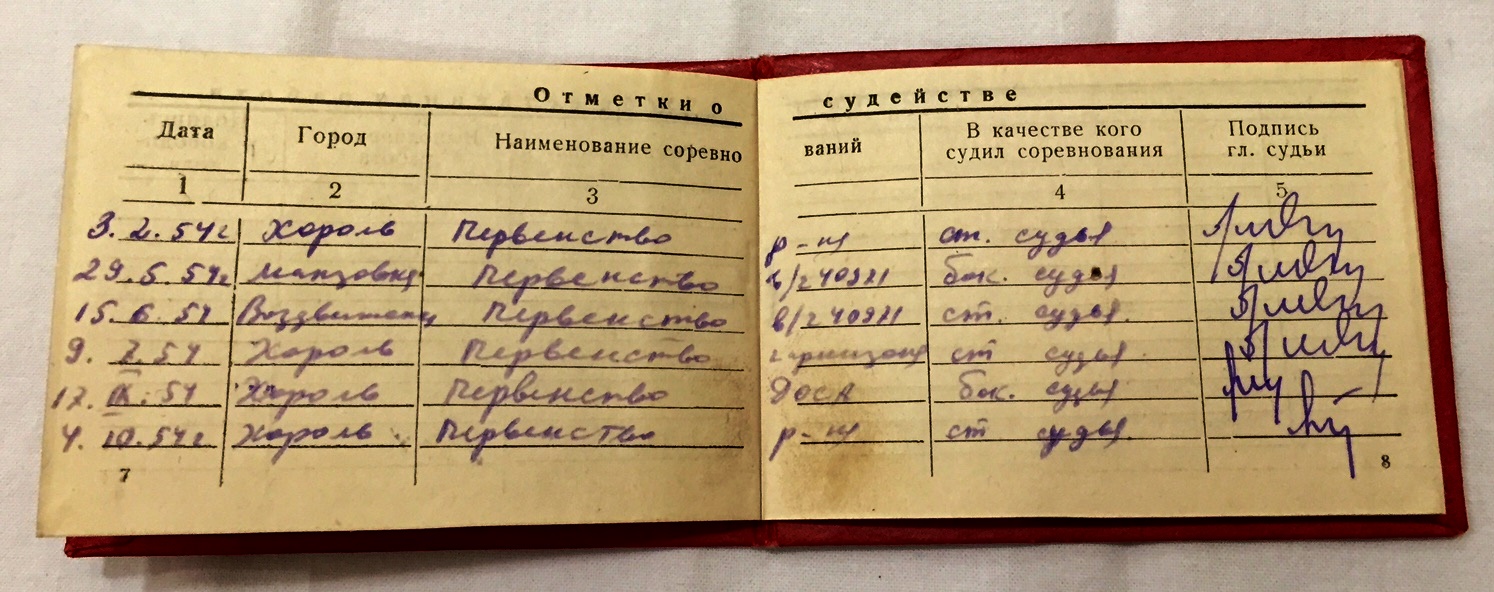 Отметки о судействе
Дата Город Наименование соревнований В качестве кого судил соревнования Подпись гл. судьи
1 2 3 4 5
3.2.54г Хороль Первенство р-на ст. судья
29.5.54г Манзовка Первенство в/ч 40921 бок. судья
15.6.54 Воздвиженка Первенство в/ч 40921 ст. судья.
9.7.54 Хороль Первенство гарнизона ст судья
12.IX.54 Хороль Первенство ДОСА бок. судья
4.10.54г Хороль Первенство р-на ст судья.
7 8